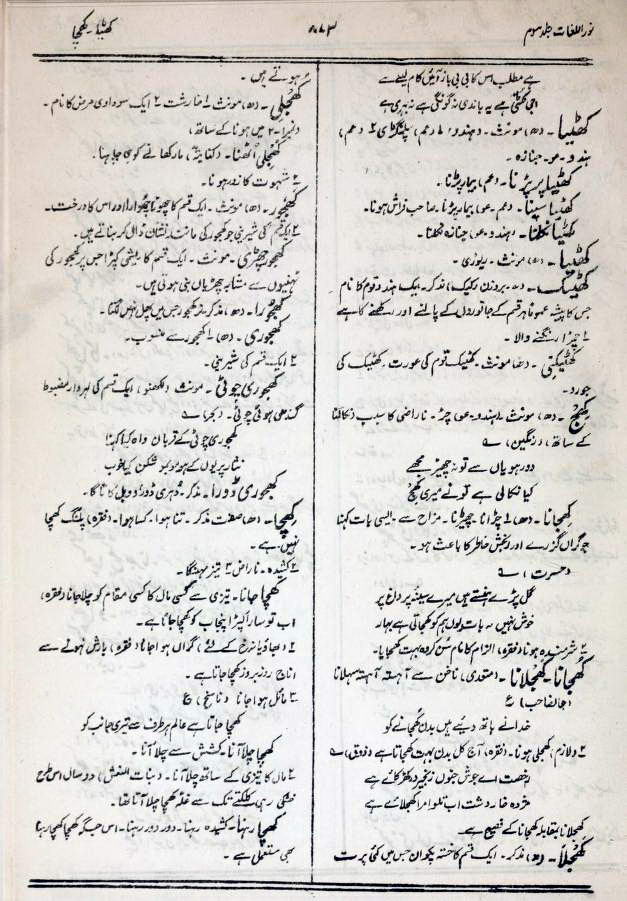 نور اللغات جلد سوم
۸۷۳
کھٹیا۔ کھچا
ہے مطلب اس کا بی بی باز آئیں کام لینے سے
اجی کھتی ہے یہ باندی نہ گونگی ہے نہ بہری ہے
کھٹیا۔ (ھ) مونث۔ (ہندو) ۱ (عم) پلنگڑی ۲ (عم)
ہندو۔ عو۔ جنازہ۔
کھٹیا پر پڑنا۔ (عم) بیمار پڑنا۔
کھٹیا سینا۔ (عم۔ عو) بیمار پڑنا۔ صاحب فراش ہونا۔
کھٹیا نکلنا۔ (ہندو۔ عو) جنازہ نکلنا۔
کھٹیا۔ (ھ) مونث۔ ریوڑی۔
کھٹیک۔ (ھ۔ بروزن رکیک) مذکر۔ ایک ہندو قوم کا نام
جس کا پیشہ عموماً ہر قسم کے جانوروں کے پالنے اور رکھنے کا ہے
۲ چمڑا رنگنے والا۔
کھٹیکنی۔ (ھ) مونث۔ کھٹیک قوم کی عورت۔ کھٹیک کی
جورو۔
کھج۔ (ھ) مونث۔ (ہندو۔ عو) چڑ۔ ناراضی کا سبب (نکالنا
کے ساتھ) (رنگین) ؎
دور ہو یاں سے تو نہ چھیڑ مجھے
کیا نکالی ہے تو نے میری کھج
کھجانا۔ (ھ) ۱ چڑانا۔ چھیڑنا۔ مزاح سے ایسی بات کہنا
جو گراں گزرے اور رنجش خاطر کا باعث ہو۔
(حسرت) ؎
گل پڑے ہنستے ہیں میرے سینۂ پر داغ پر
خوش نہیں یہ بات یوں ہم کو کھجاتی ہے بہار
۲ شرمندہ ہونا (فقرہ) الزام کا نام سن کر وہ بہت کھجایا۔
کھجانا۔ کھجلانا۔ (متعدی) ناخن سے آہستہ آہستہ سہلانا
(جانصاحب) ع
خدا نے ہاتھ دیے ہیں بدن کھجانے کو
۲ (لازم) کھجلی ہونا۔ (فقرہ) آج کل بدن بہت کھجاتا ہے (ذوق) ؎
رخصت اے جوش جنوں زنجیر در کھڑکائے ہے
مژدہ خار دشت اب تلوا مرا کھجلائے ہے
کھجلانا بمقابلہ کھجانا کے فصیح ہے۔
کھجلا۔ (ھ) مذکر۔ ایک قسم کا خستہ پکوان جس میں کئی پرت
ہوتے ہیں۔
کھجلی۔ (ھ) مونث ۱ خارشت ۲ ایک سوداوی مرض کا نام۔
۲ میں ہونا کے ساتھ)
کھجلی اٹھنا۔ (کنایۃً) مار کھانے کو جی چاہنا۔
۲ شہوت کا زور ہونا۔
کھجور۔ (ھ) مونث۔ ایک قسم کا چھوٹا چھوارا اور اس کا درخت۔
۲ ایک قسم کی شیرینی جو کھجور کی مانند نشان ڈال کر بناتے ہیں۔
کھجور چھڑی۔ مونث۔ ایک قسم کا ریشمی کپڑا جس پر کھجور کی
ٹہنیوں سے مشابہ چھڑیاں بنی ہوتی ہیں۔
کھجورا۔ (ھ) مذکر۔ نر کھجور جس میں پھل نہیں لگتا۔
کھجوری۔ (ھ) ۱ کھجور سے منسوب۔
۲ ایک قسم کی شیرینی۔
کھجوری چوٹی۔ مونث (لکھنؤ) ایک قسم کی لہردار مضبوط
گندھی ہوئی چوٹی۔ (بحر) ؎
کھجوری چوٹی کے قربان واہ کیا کہنا
نثار پریوں کے ہو مو بمو شکن کیا خوب
کھجوری ڈورا۔ مذکر۔ دُہری ڈور دو دو بل کا تاگا۔
کھچا۔ (ھ) صفت مذکر۔ تنا ہوا۔ کسا ہوا۔ (فقرہ) پلنگ کھچا
نہیں ہے۔
۲ کشیدہ۔ ناراض ۳ تیز۔ مہنگا۔
کھچا جانا۔ تیزی سے کسی مال کا کسی مقام کو چلا جانا (فقرہ)
اب تو سارا کپڑا پنجاب کو کھچا جاتا ہے۔
۲ (بھاؤ یا نرخ کے لئے) گراں ہوا جانا (فقرہ) بارش نہونے سے
اناج روز بروز کھچا جاتا ہے۔
۳ مائل ہوا جانا (ناسخ) ع
کھچا جاتا ہے عالم ہر طرف سے تیری جانب کو
کھچا چلا آنا۔ کشش سے چلا آنا۔
۲ مال کا تیزی کے ساتھ چلا آنا۔ (بنات النعش) دو سال اس طرح
خشکی رہی کلکتے تک سے غلہ کھچا چلا آتا تھا۔
کھچا رہنا۔ کشیدہ رہنا۔ دور دور رہنا۔ اس جگہ کھچا کھچا رہنا
بھی مستعمل ہے۔